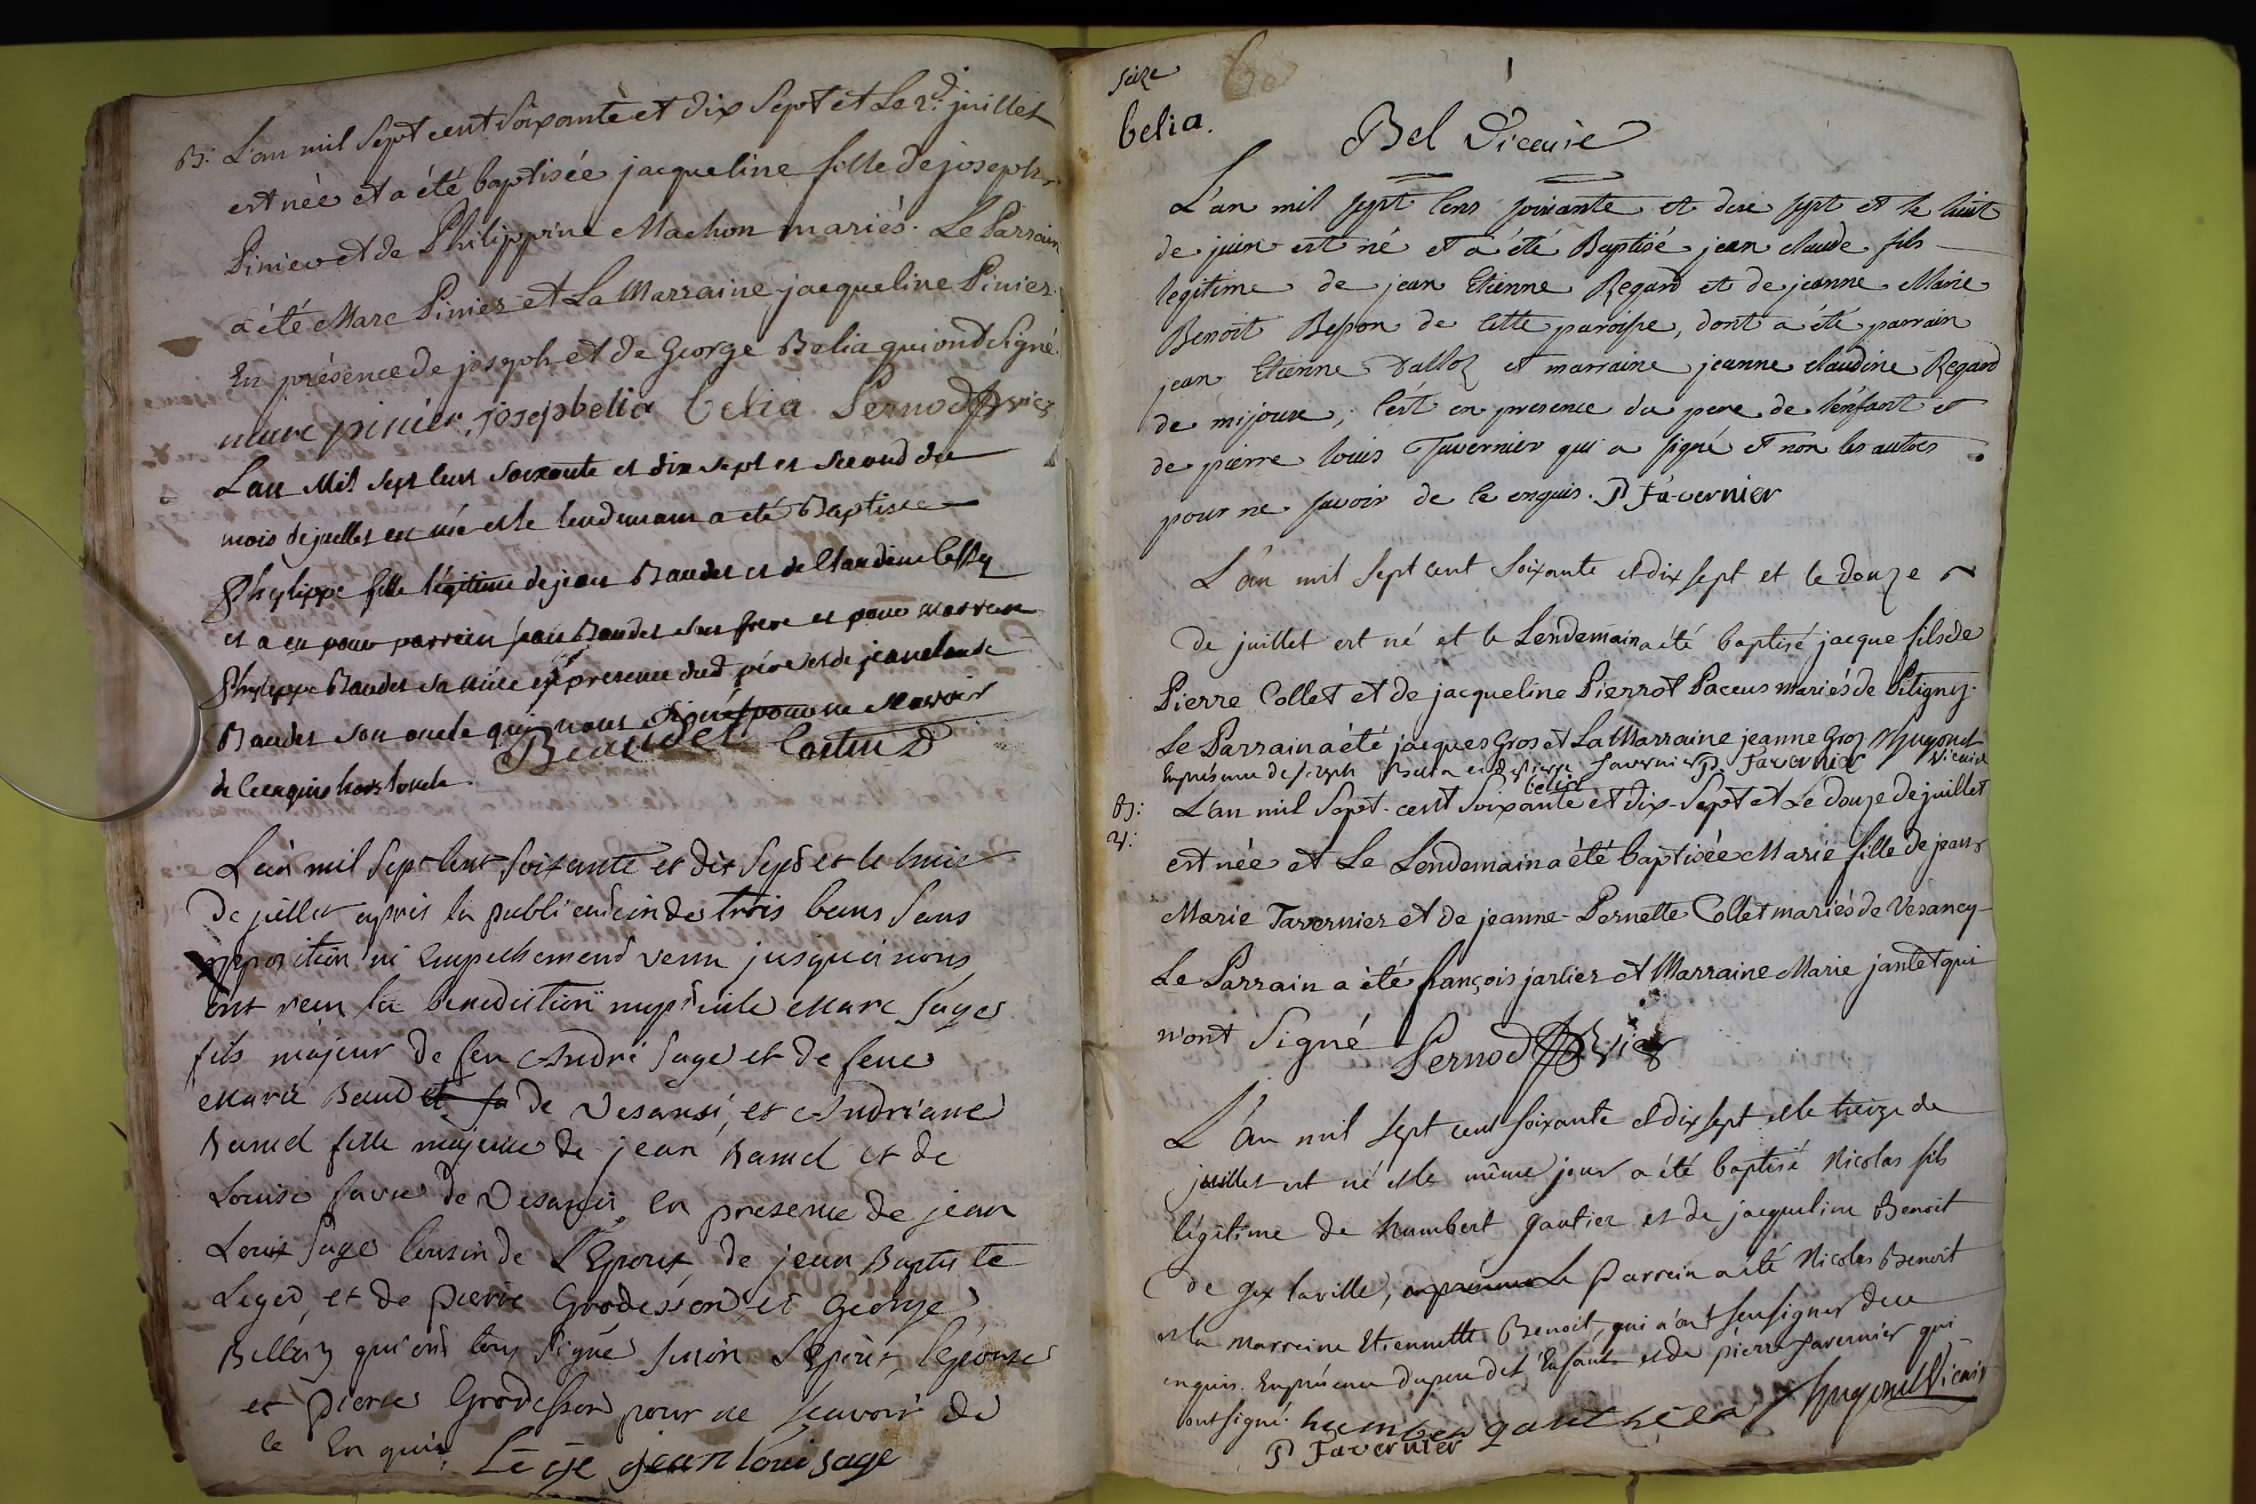 B: L'an mil Sept cent Soixante et dix Sept et Le 2d. juillet
est née et a été baptisée jacqueline fille de joseph
Pinier et de Philippine Machon mariés. Le Parrain
a été Marc Pinier et La Marraine jacqueline Pinier.
En présence de joseph et de George Belia qui ont Signé.
marc pinier, joseph belia belia Pernod vic
L'an Mil sept cent soixante et dix sept et second du
mois de juillet est née et le lendemain a été Baptisée
Phylippe fille légitime de jean Baudet et de Claudine
et a eu pour parrein jean Baudet son frere et pour marreine
Phylippe Baudet sa niéce en presence dud père et de jean claude
Baudet son oncle qui nous signé pour ne sçavoir
de ce enquis hors l'oncle.
Beaudet Castin
L'an mil Sept cent soixante et dix sept et le huit
De juillet après la publication de trois bans Sans
opposition ni Empechement venu jusqu'a nous
ont recu la benediction nuptiale Marc Sage
fils majeur de feu André Sage et de feue
Marie Baud et sa de Vesansi, et Andriane
Bamel fille majeure de jean Bamel et de
Louise favre de Vesansi, en presence de jean
Louis Sage Cousin de L'Epoux, de jean Baptiste
Leger, et de pierre Grodesson et George
Bellia qui ont tous Signé sinon l'Epoux, l'epouse
et pierre Grodesson pour ne sçavoir de
ce En quis. Lége jean louis sage
seize
belia.
Bel Vicaire
L'an mil sept cens soixante et dixe sept et le huit
de juin est né et a été Baptisé jean claude fils
legitime de jean Etienne Regard et de jeanne Marie
Benoit Besson de cette paroisse, dont a été parrain
jean Etienne Dalloz et marraine jeanne claudine Regard
de mijoux, c'est en presence du pere de l'enfant et
de pierre louis Tavernier qui a signé et non les autres
pour ne savoir de ce enquis. P Tavernier
L'an mil sept cent soixante et dix sept et le douze
de juillet est né et le Lendemain a été baptisé jacque fils de
Pierre Collet et de jacqueline Pierrot Paccus mariés de Pitigny.
Le Parrain a été jacques Gros et La Marraine jeanne Groz Hugonet
Enprésence de joseph Belia et de pierre Tavernier P. Tavernier Vicaire
belia
B: L'an mil Sept-cent Soixante et dix-Sept et Le douze de juillet
est née et Le Lendemain a été baptisée Marie fille de jean
Marie Tavernier et de jeanne-Pernette Collet mariés de Vésancy
Le Parrain a été françois jarlier et Marraine Marie jantet qui
n'ont Signé Pernod Vic
L'An mil sept cent soixante et dix sept et le treize de
juillet est né et le même jour a été baptisé Nicolas fils
légitime de humbert gautier et de jacqueline Benoit
de gex la ville, Le Parrein a été Nicolas Benoit
et la marreine Etiennette Benoit, qui n'ont seu signer de ce
enquis. En présence du pere de l'Enfant et de pierre Tavernier qui
ont signé. humber gauthier Hugonet Vicaire
P Tavernier